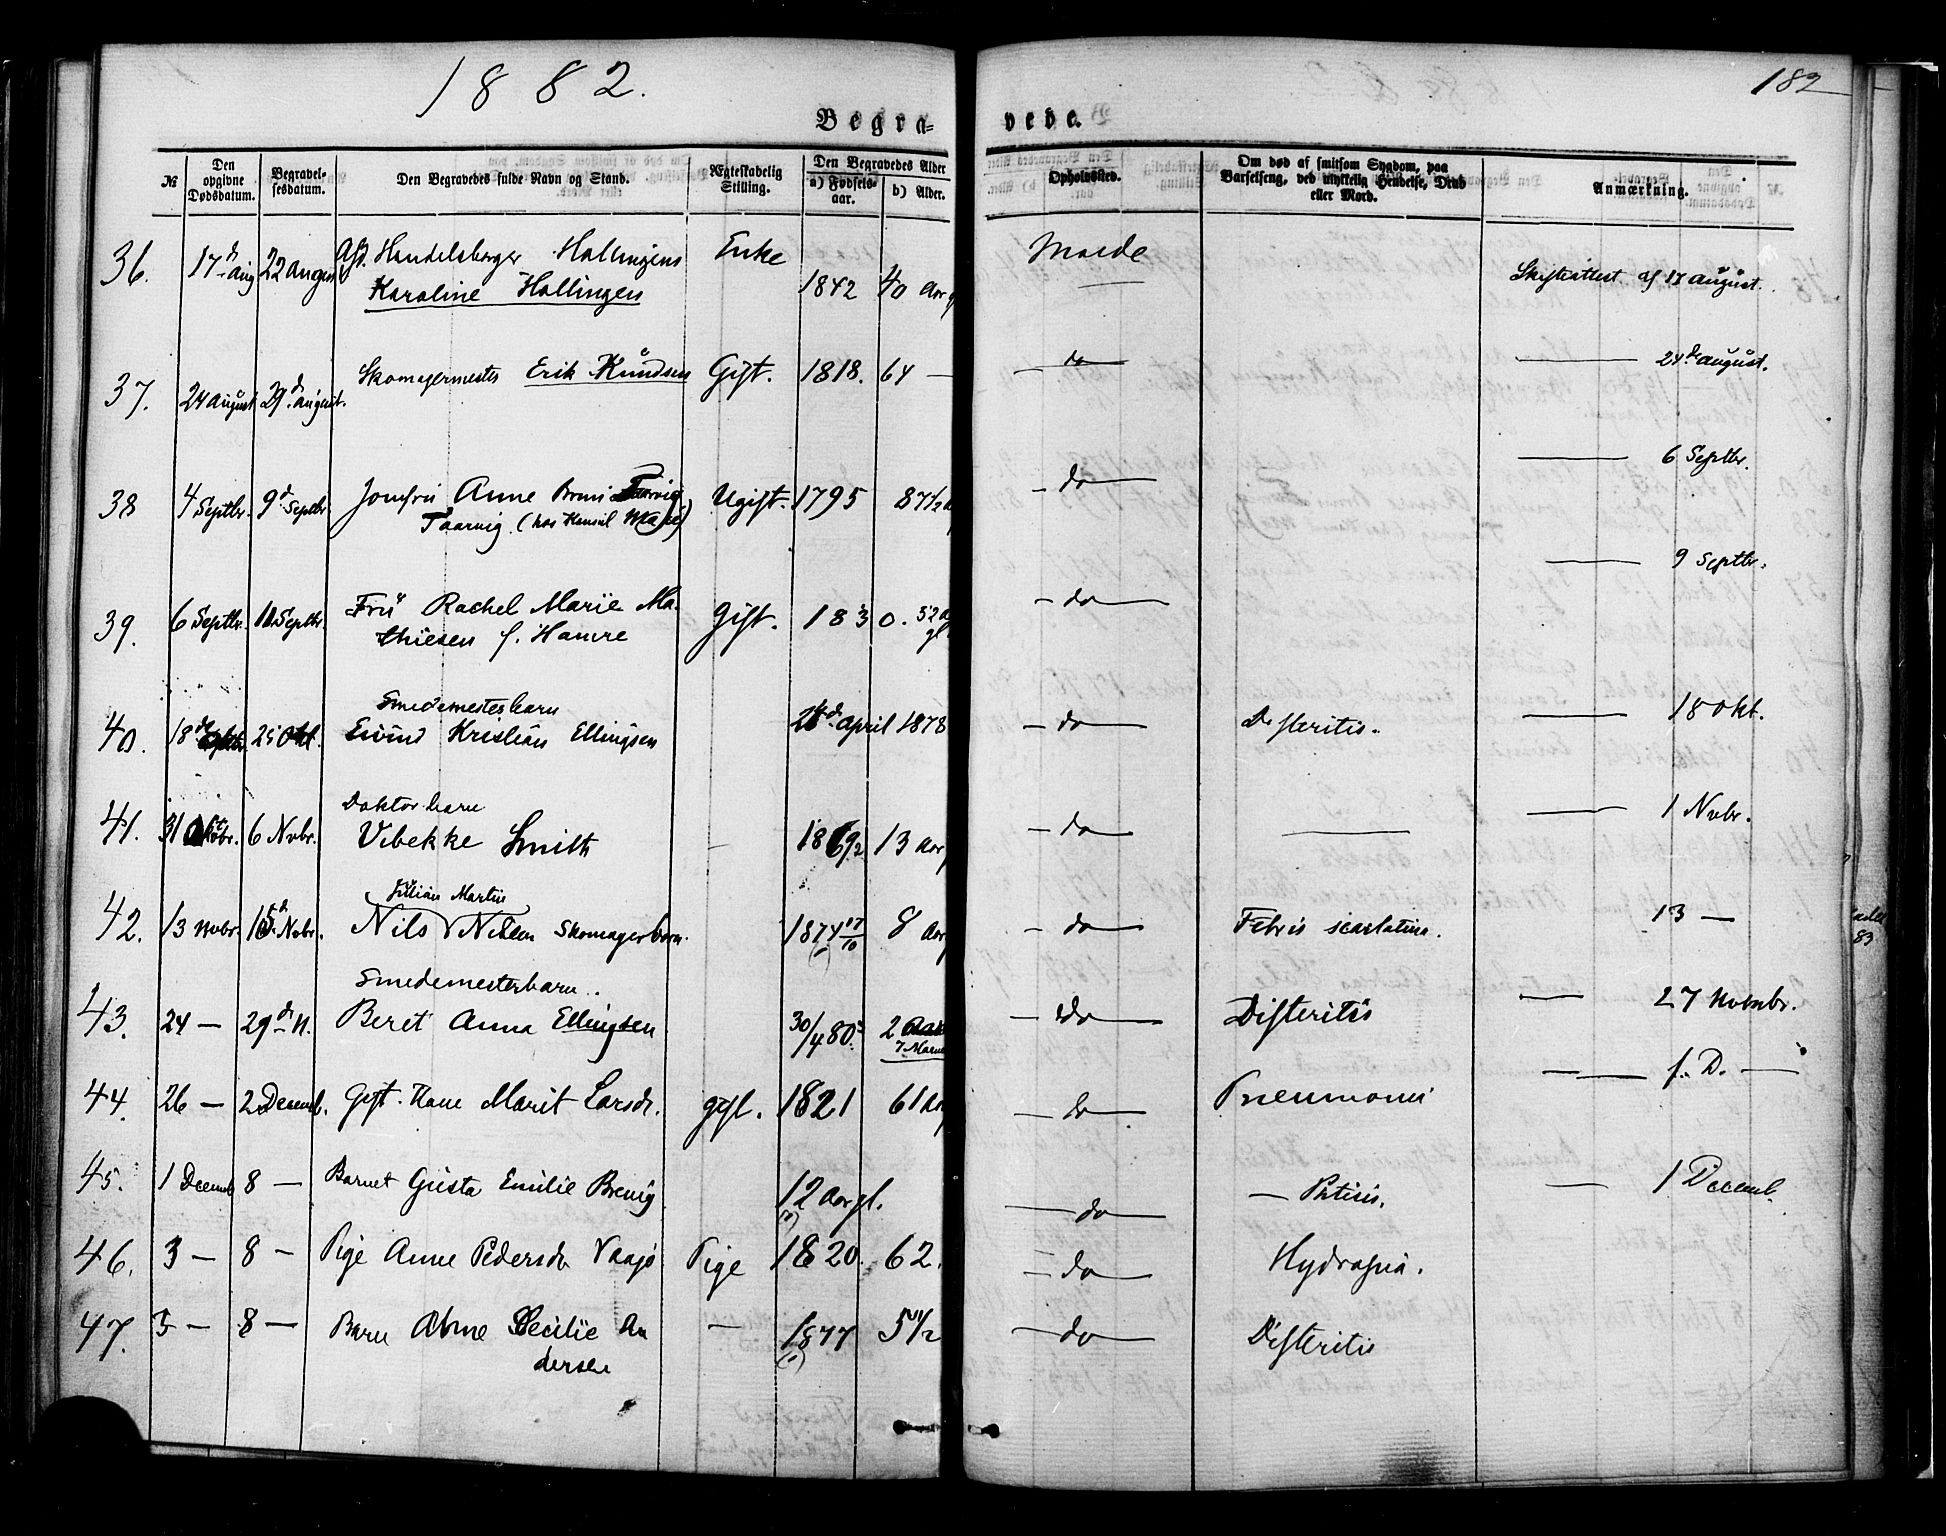 1882.
182
Begra-
vede.
№
Den opgivne Dødsdatum.
Begravelsesdatum.
Den Begravedes fulde Navn og Stand.
Ægteskabelig Stilling.
Den Begravedes Alder
a) Fødselsaar.
b) Alder.
Opholdssted.
Om død af smitsom Sygdom, paa Barselseng, ved ulykkelig Hendelse, Drab eller Mord.
Anmærkning.
36. 17d Aug 22 August Afd. Handelsborger Hallingens Enke Molde
Karoline Hallingen 1842 40 Aar Skifteattest af 18 August.
37. 24 August 29d August. Skomagermester Erik Knudsen Gift. 1818. 64 — — do — — 24de August.
38 4 Septbr. 9d Septbr. Jomfru Anne Taarvig Ugift. 1795 87½ — do — — 6 Septbr.
Taarvig. (hos Konsul
39. 6 Septbr. Septbr. Frü Rachel Marie Ma- Gift. 1830. 52 — do — — 9 Septbr.
thiesen f. Hamre
40. 18d 25 Okt. Smedemesterbarn
Eivind Kristian Ellingsen April 1878 — do — Difteritis. — 18 Okt.
41. 31 Oktobr. 6 Nvbr. Doktorbarn
Vibekke Smith — 13 Aar — do — — — 1 Nvbr.
Julian Martin
42. 13 Nvbr. Nvbr. Nils Nilsen Skomagerbarn. 1874 17/10 8 Aar — do — Febris scarlatina. 13 —
43. 24 — 29d N. Smedemesterbarn.
Beret Anna Ellingsen 30/4 80. 2 — do — Difteritis — 27 Nvbr.
44. 26 — 2 Decemb. Gift Kone Marit Larsdr. gift. 1821 61 Aar — do — Pneumoni — — f. D. —
45. 1 Decemb 8 — Barnet Gusta Emilie Brevig 12 Aar gl. — do — — Phtisis. — 1 Decemb.
46. 3 — 8 — Pige Anne Pedersdr Vaagø Pige 1820. 62. — do — Hydropsia.
47. 5 — 8 — Barn Anne Cecilie An — 1877 5½ — do — Difteritis
dersen